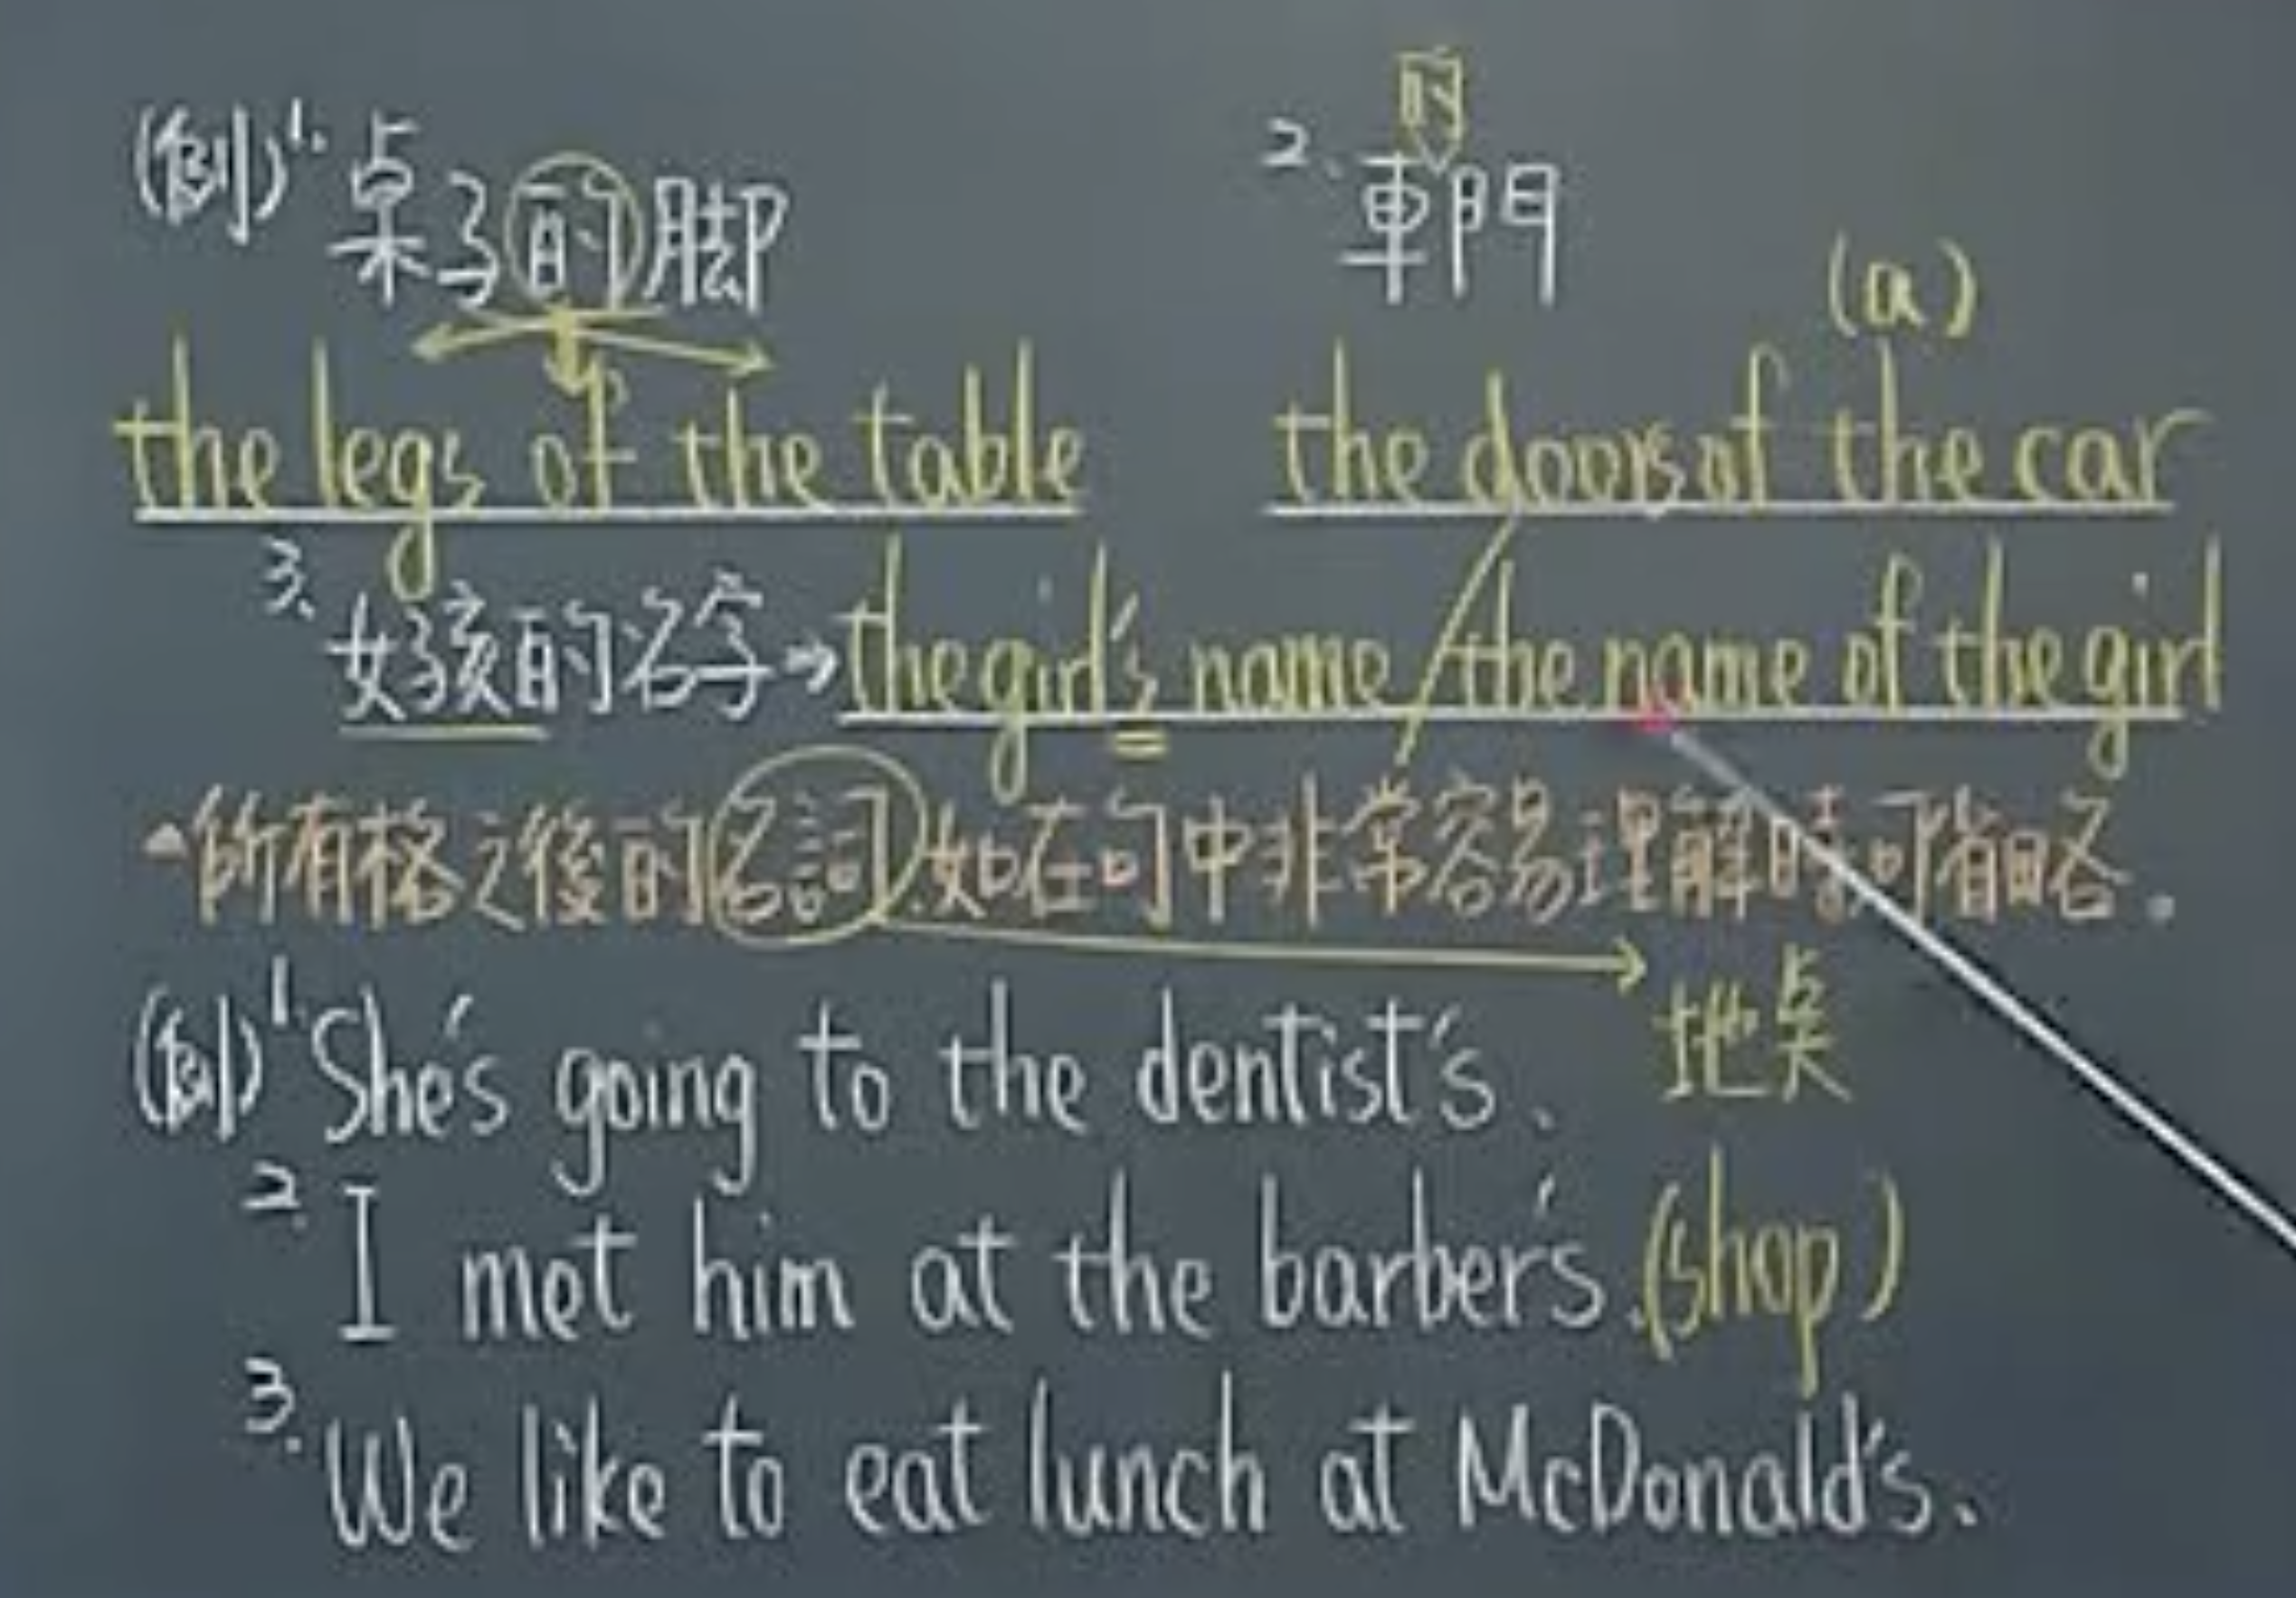 (例)1. 桌子的脚
2. 車門
的
(a)
the legs of the table
the doors of the car
3. 女孩的名字→the girl's name/the name of the girl
所有格之後的名詞,如在句中非常容易理解時可省略。
地点
(例)1. She's going to the dentist's.
2. I met him at the barber's.(shop)
3. We like to eat lunch at McDonald's.